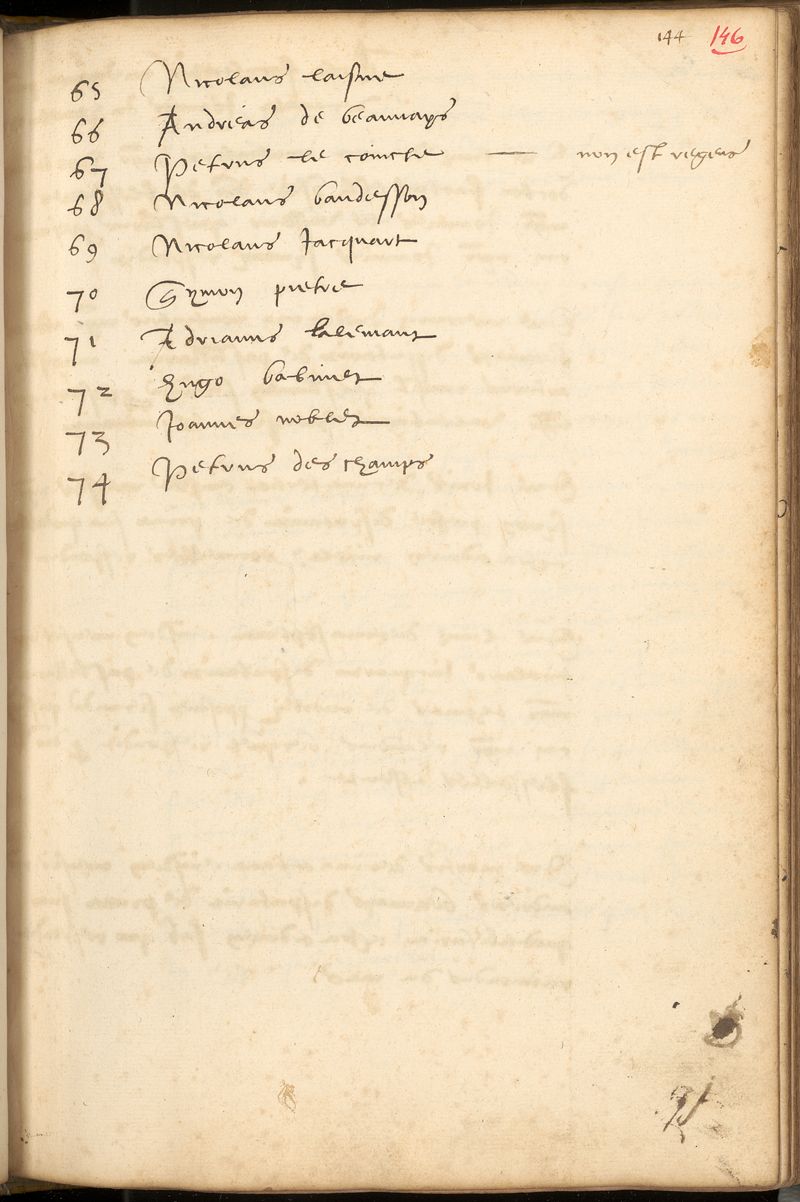 144 146
65 Nicolaus laisne
66 Andreas de beauvays
67 Petrus le coincte — non est regens
68 Nicolaus baudesson
69 Nicolaus Jacquart
70 Symon pietre
71 Adrianus lalemant
72 Hugo babinet
73 Joannes noblet
74 Petrus des champs